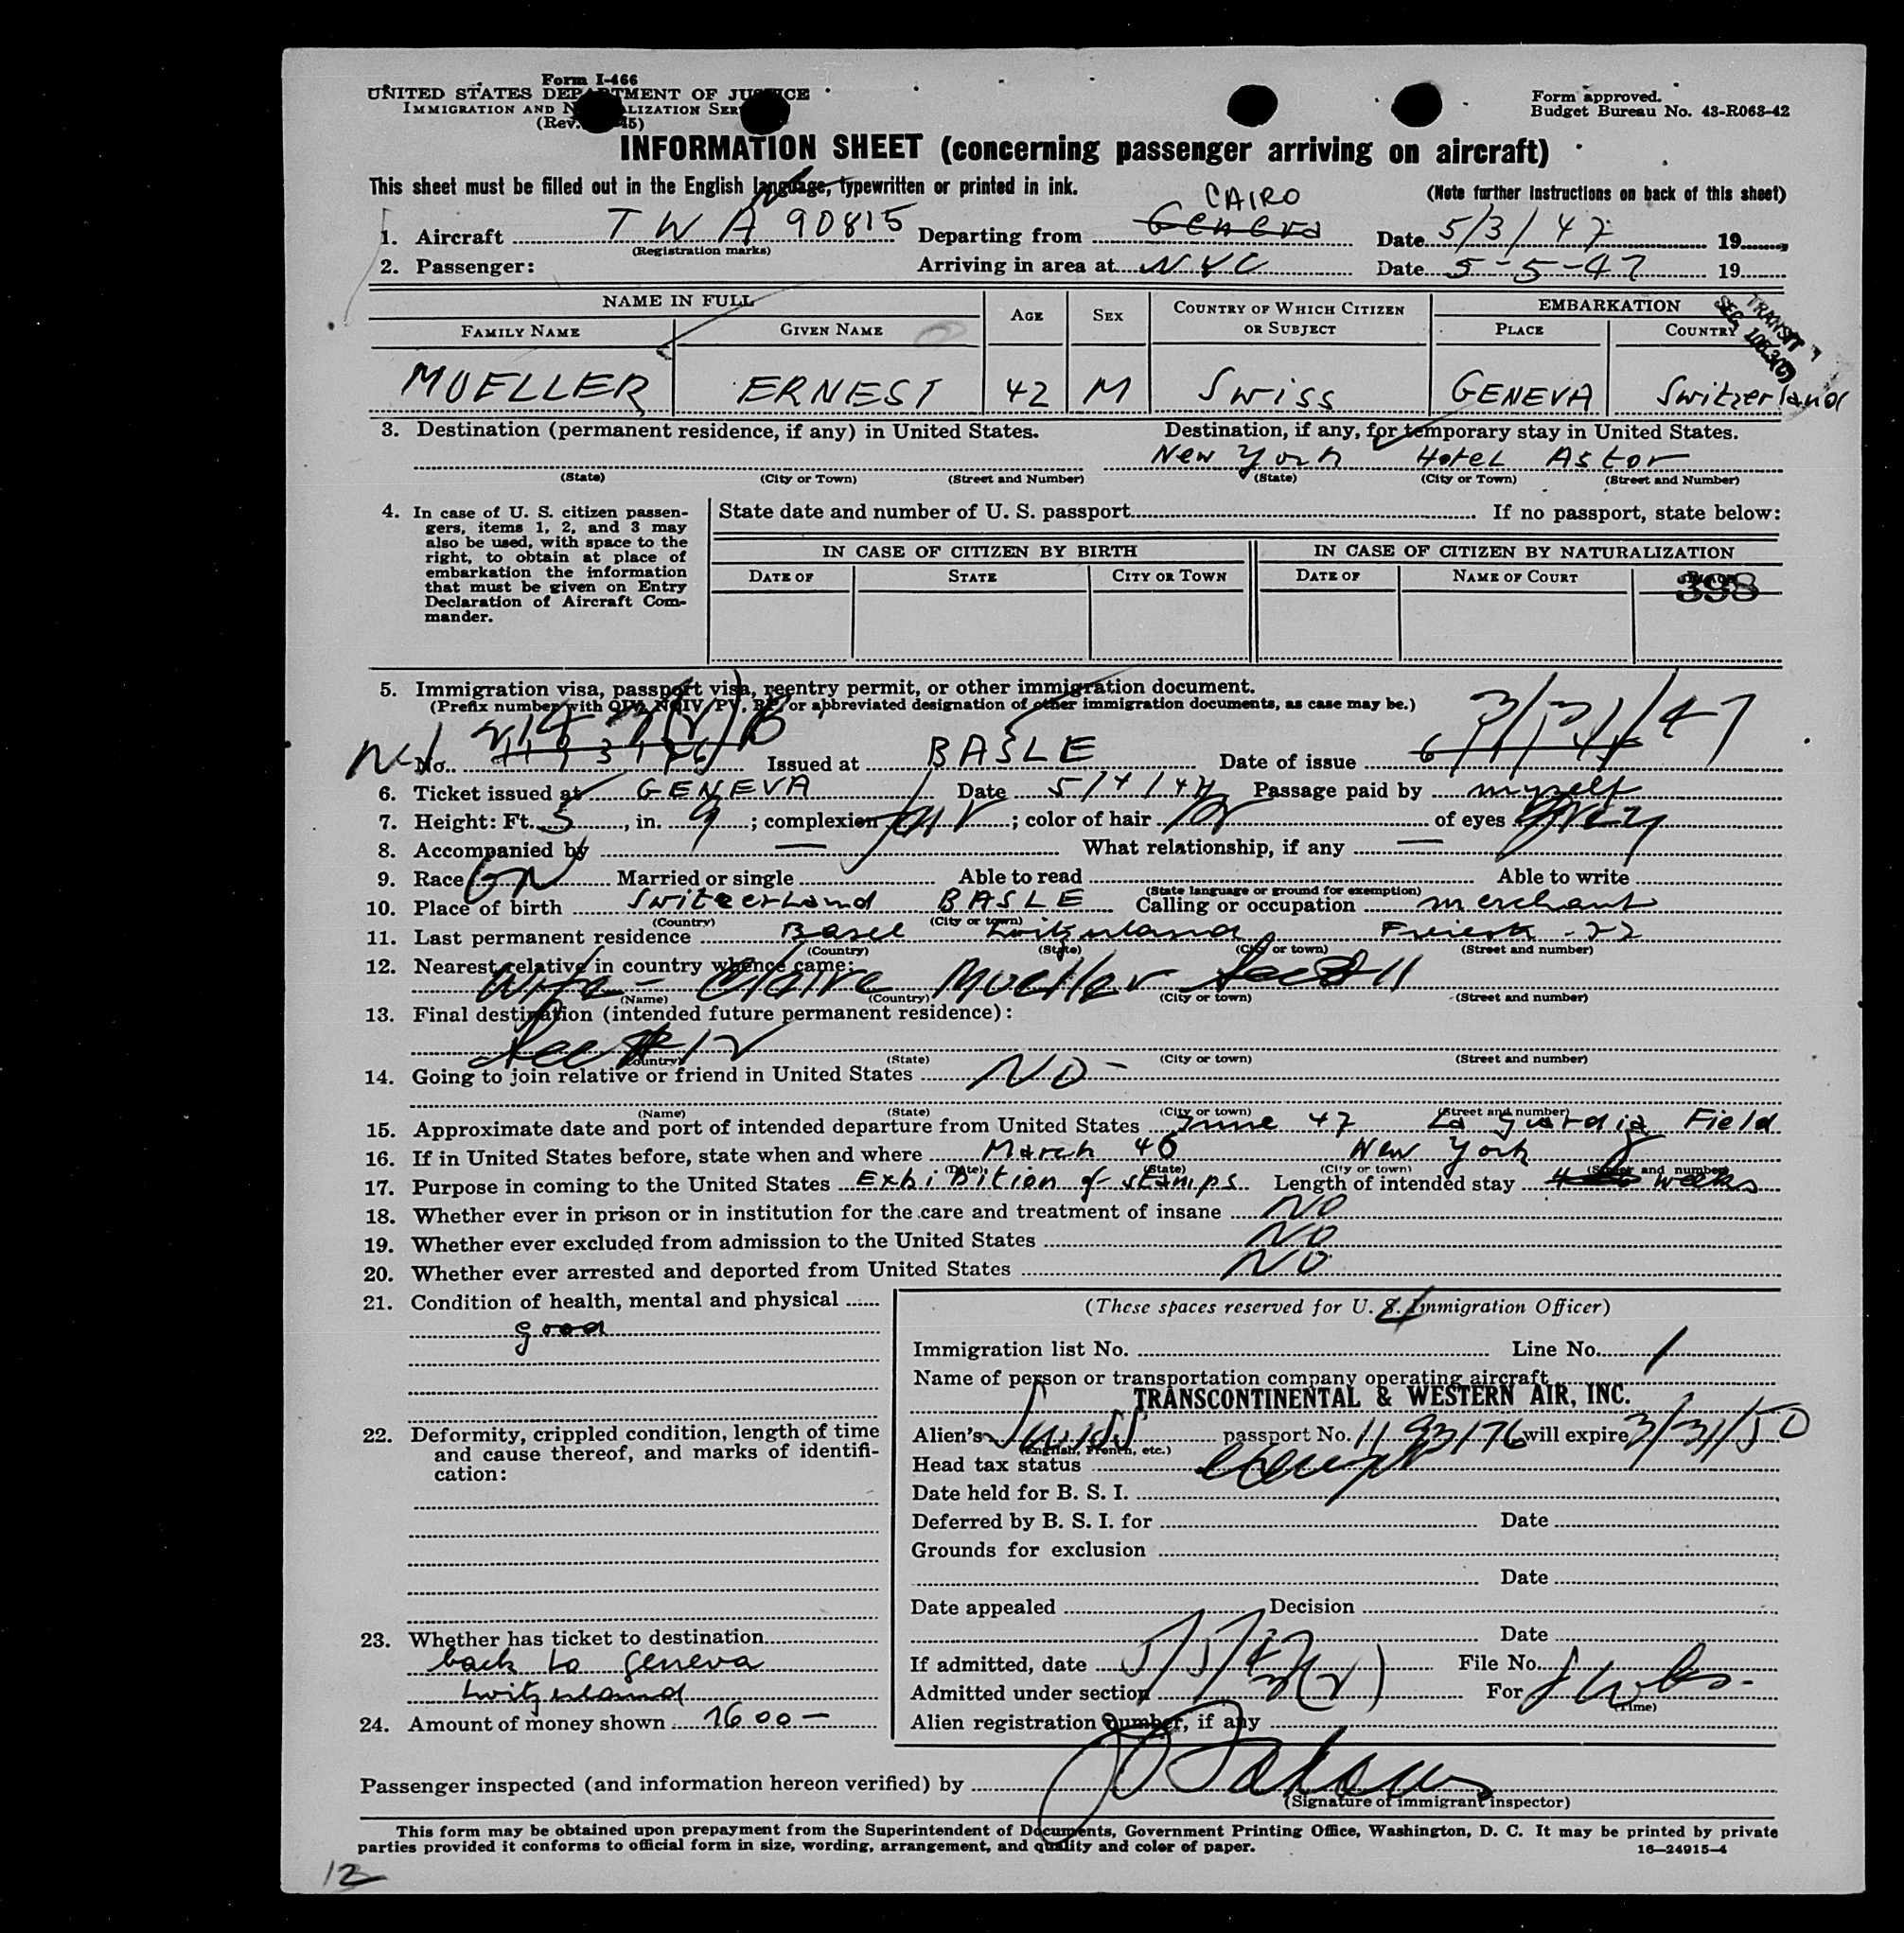 Form I-466
UNITED STATES DEPARTMENT OF JUSTICE
IMMIGRATION AND NATURALIZATION SERVICE
(Rev. 45)
Form approved.
Budget Bureau No. 43-R063-42
INFORMATION SHEET (concerning passenger arriving on aircraft)
This sheet must be filled out in the English language, typewritten or printed in ink.
(Note further instructions on back of this sheet)
CAIRO
1. Aircraft TWA 90815 Departing from Geneva Date 5/3/47 19
(Registration marks)
2. Passenger: Arriving in area at NYC Date 5-5-47 19
NAME IN FULL AGE SEX COUNTRY OF WHICH CITIZEN OR SUBJECT EMBARKATION
FAMILY NAME GIVEN NAME PLACE COUNTRY
TRANSIT
MUELLER ERNEST 42 M Swiss GENEVA Switzerland
3. Destination (permanent residence, if any) in United States. Destination, if any, for temporary stay in United States.
New York Hotel Astor
(State) (City or Town) (Street and Number) (State) (City or Town) (Street and Number)
4. In case of U. S. citizen passengers, items 1, 2, and 3 may also be used, with space to the right, to obtain at place of embarkation the information that must be given on Entry Declaration of Aircraft Commander.
State date and number of U. S. passport If no passport, state below:
IN CASE OF CITIZEN BY BIRTH IN CASE OF CITIZEN BY NATURALIZATION
DATE OF STATE CITY OR TOWN DATE OF NAME OF COURT
398
5. Immigration visa, passport visa, reentry permit, or other immigration document.
(Prefix number with QIV, NQIV, PV, RP, or abbreviated designation of other immigration documents, as case may be.)
No. 1193176 Issued at BASLE Date of issue 3/31/47
6. Ticket issued at GENEVA Date 5/4/47 Passage paid by myself
7. Height: Ft. 5, in. 9; complexion fair; color of hair br of eyes grey
8. Accompanied by — What relationship, if any —
9. Race Married or single Able to read Able to write
(State language or ground for exemption)
10. Place of birth Switzerland BASLE Calling or occupation merchant
(Country) (City or town)
11. Last permanent residence Basel Switzerland 22
(Country) (State) (City or town) (Street and number)
12. Nearest relative in country whence came:
Wife - Claire Mueller See # 11
(Name) (Country) (City or town) (Street and number)
13. Final destination (intended future permanent residence):
See # 12
(Country) (State) (City or town) (Street and number)
14. Going to join relative or friend in United States NO -
(Name) (State) (City or town) (Street and number)
15. Approximate date and port of intended departure from United States June 47 La Guardia Field
16. If in United States before, state when and where March 46 New York
(Date) (State) (City or town) (Street and number)
17. Purpose in coming to the United States Exhibition of stamps Length of intended stay weeks
18. Whether ever in prison or in institution for the care and treatment of insane NO
19. Whether ever excluded from admission to the United States NO
20. Whether ever arrested and deported from United States NO
21. Condition of health, mental and physical
good
22. Deformity, crippled condition, length of time and cause thereof, and marks of identification:
23. Whether has ticket to destination
back to Geneva
Switzerland
24. Amount of money shown 1600 —
(These spaces reserved for U. S. Immigration Officer)
Immigration list No. Line No. 1
Name of person or transportation company operating aircraft
TRANSCONTINENTAL & WESTERN AIR, INC.
Alien's Swiss passport No. 1193176 will expire 3/31/50
(English, French, etc.)
Head tax status exempt
Date held for B. S. I.
Deferred by B. S. I. for Date
Grounds for exclusion
Date
Date appealed Decision
Date
If admitted, date 5/5/47 File No.
Admitted under section 3(2) For 8 wks.
(Time)
Alien registration number, if any
Passenger inspected (and information hereon verified) by
(Signature of immigrant inspector)
This form may be obtained upon prepayment from the Superintendent of Documents, Government Printing Office, Washington, D. C. It may be printed by private
parties provided it conforms to official form in size, wording, arrangement, and quality and color of paper.
16—24915-4
12